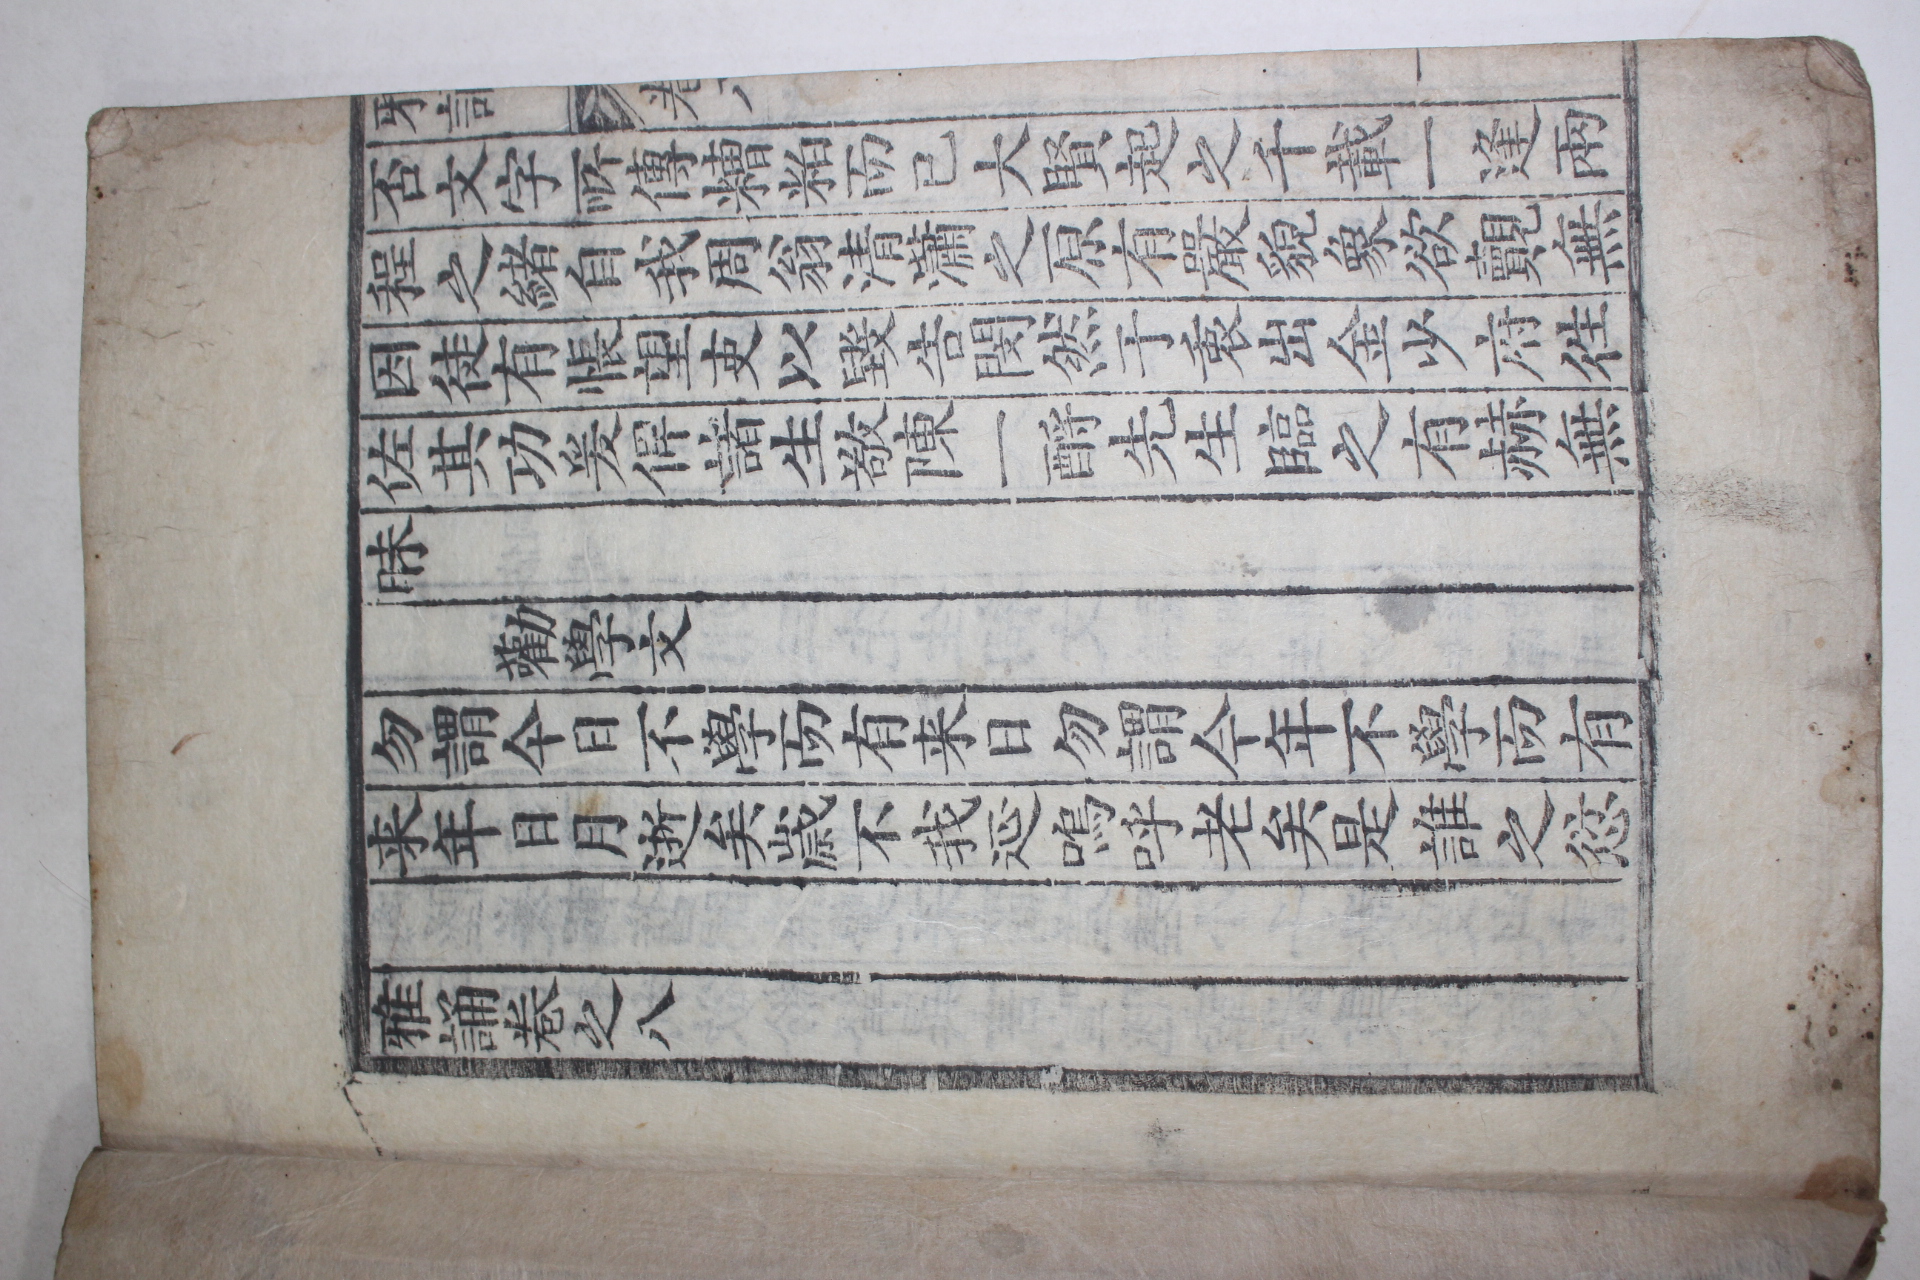 雅誦 卷八
否文字所傳糟粕而已大賢起之千載一逢兩
程之緖自我周翁淸瀟之原有嚴貌象欲觀無
因徒有悵望吏以毀告閔然予衷出金少府往
佐其功爰俾諸生敬陳一酹先生臨之有赫無
昧
勸學文
勿謂今日不學而有来日勿謂今年不學而有
来年日月逝矣歲不我延嗚呼老矣是誰之愆
雅誦卷之八